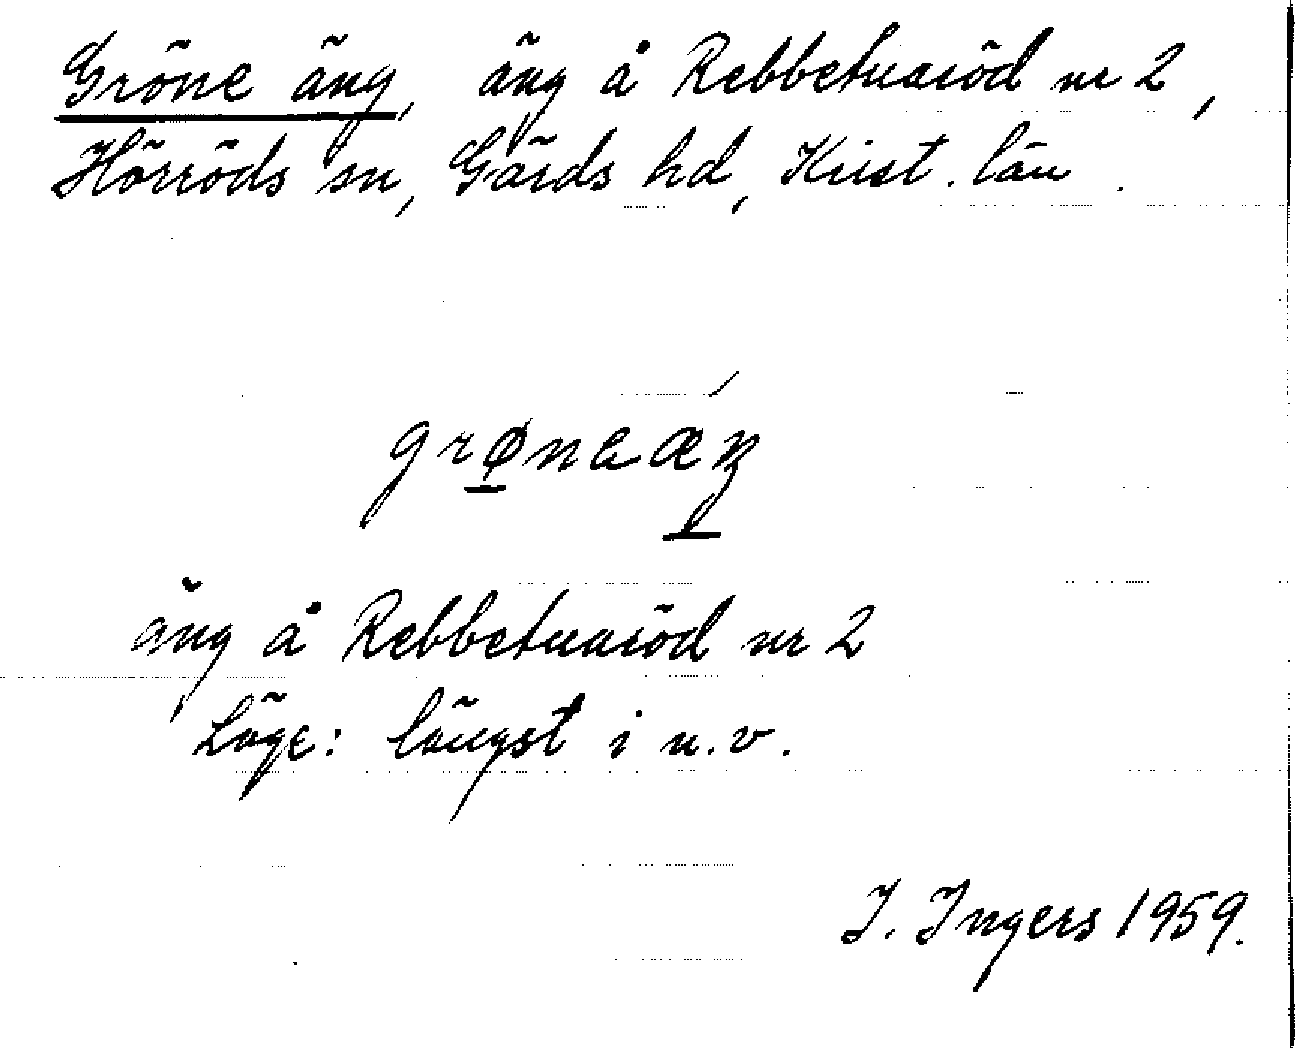 Gröne äng, äng å Rebbetuaröd nr 2,
Hörröds sn, Gärds hd, Krist. län.
grøna ǽŋ
äng å Rebbetuaröd nr 2
Läge: längst i n.v.
I. Ingers 1959.